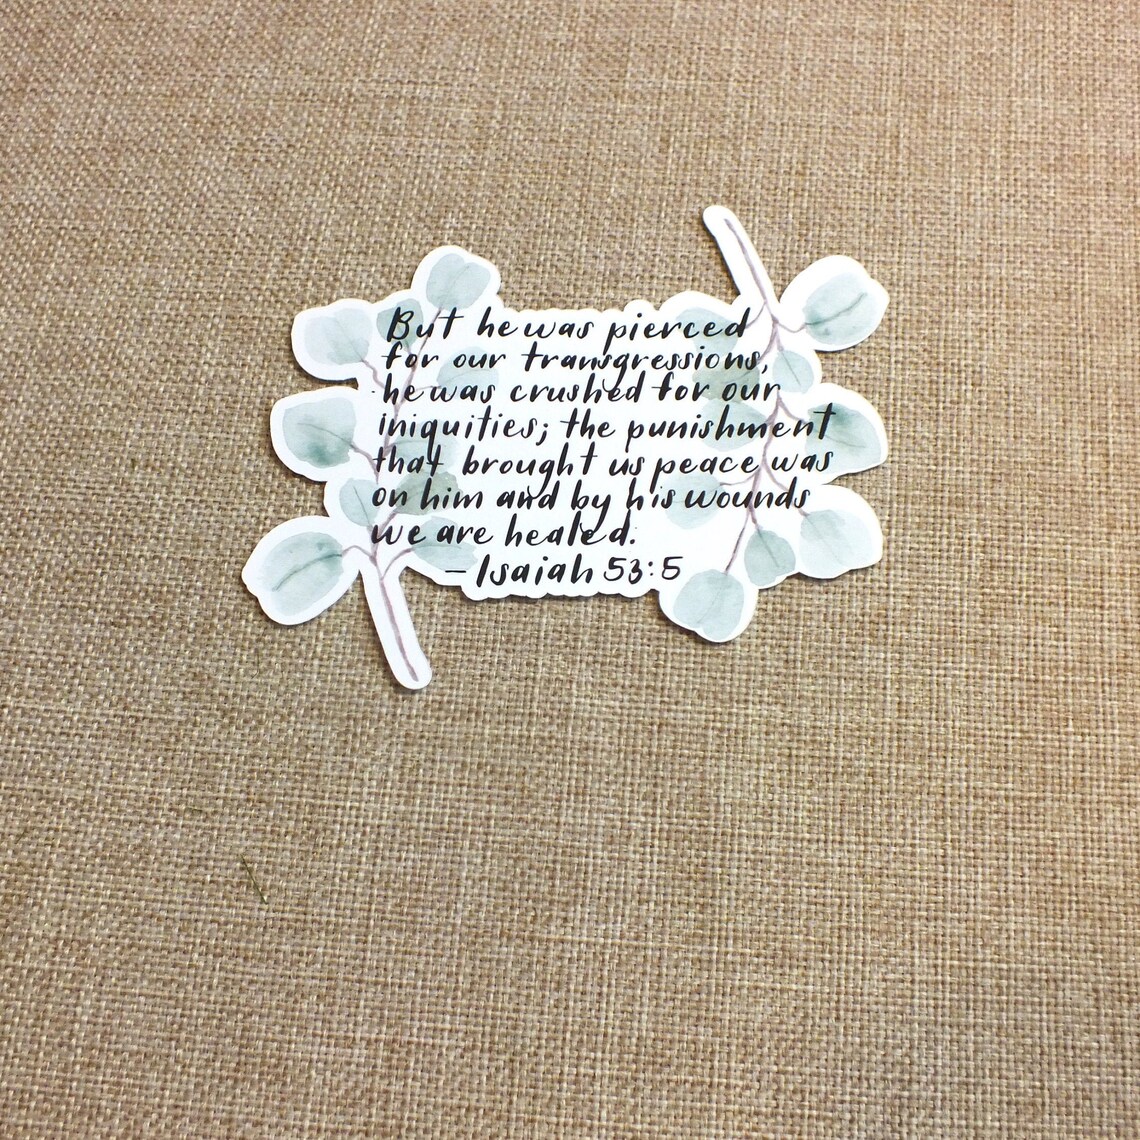 But he was pierced
for our transgressions,
he was crushed for our
iniquities; the punishment
that brought us peace was
on him and by his wounds
we are healed.
– Isaiah 53:5